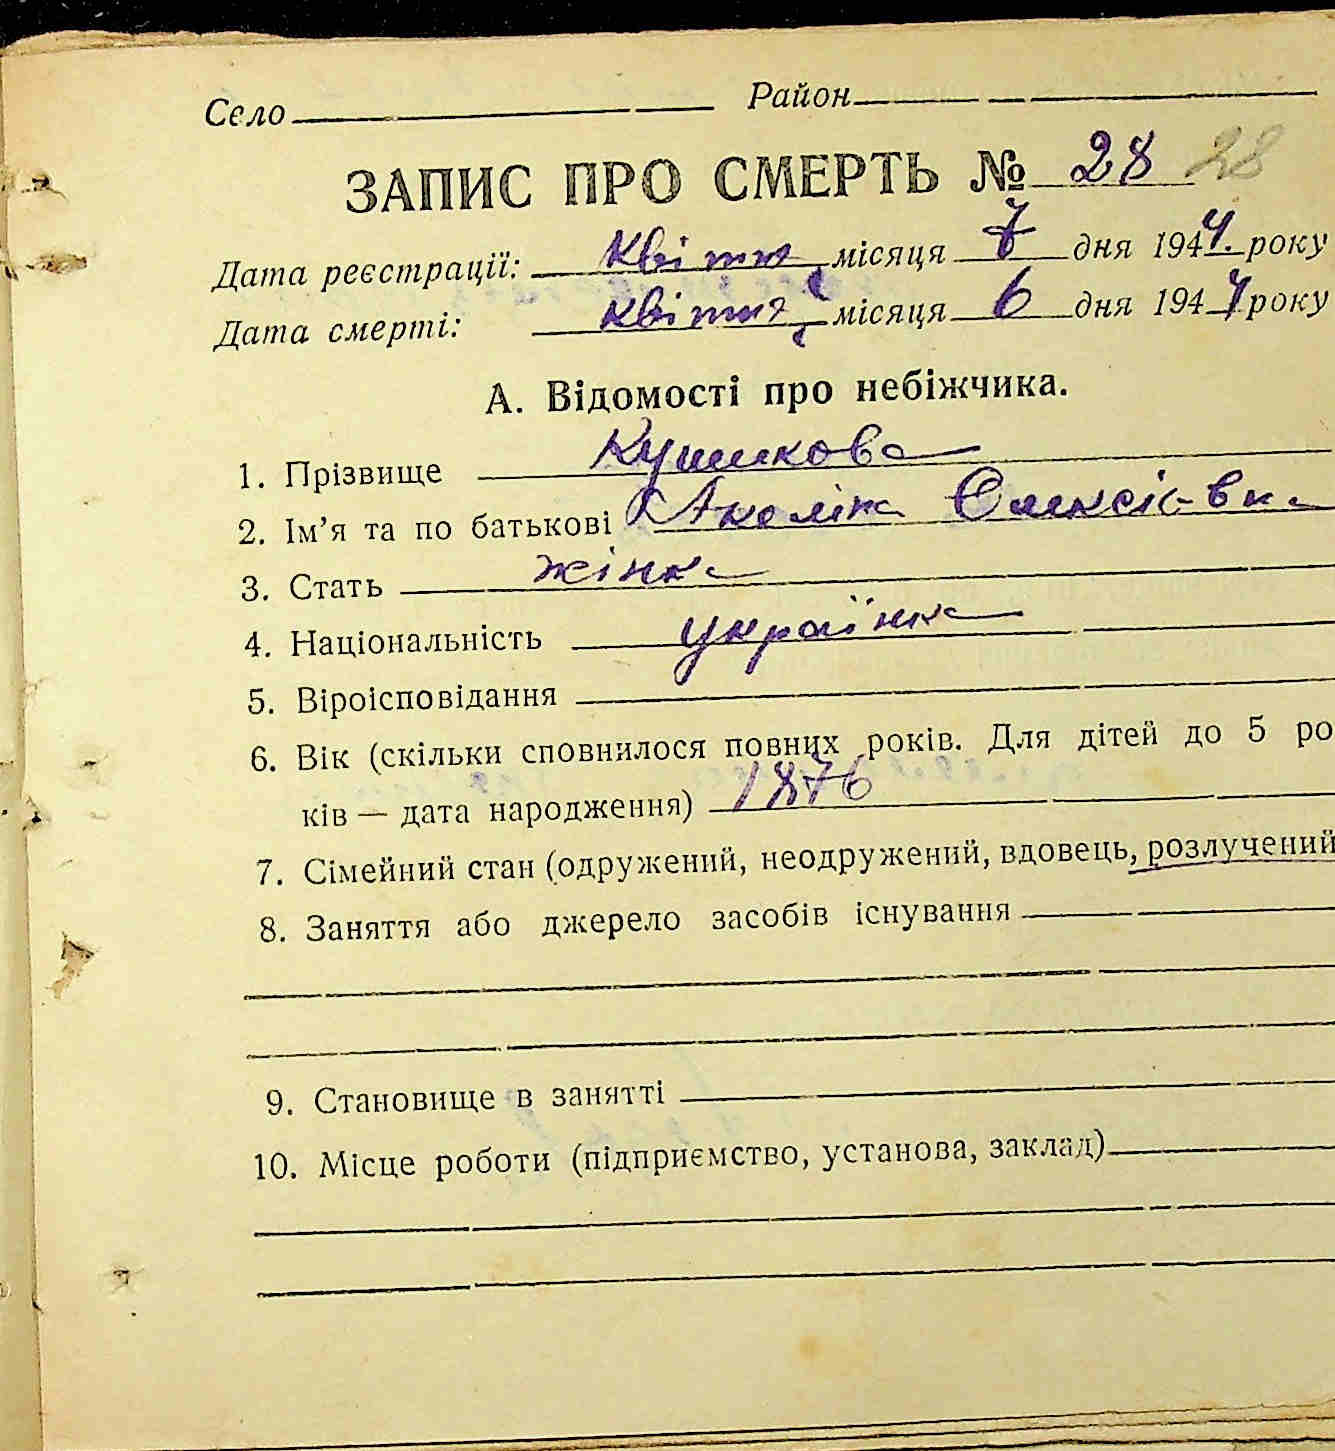 Село Район
ЗАПИС ПРО СМЕРТЬ № 28 28
Дата реєстрації: квітня місяця 7 дня 1944. року
Дата смерті: квітня місяця 6 дня 1944 року
А. Відомості про небіжчика.
1. Прізвище Кушикова
2. Ім’я та по батькові Акеліна Олексіївна
3. Стать жінка
4. Національність українка
5. Віроісповідання
6. Вік (скільки сповнилося повних років. Для дітей до 5 ро
ків — дата народження) 1876
7. Сімейний стан (одружений, неодружений, вдовець, розлучений
8. Заняття або джерело засобів існування
9. Становище в занятті
10. Місце роботи (підприємство, установа, заклад)